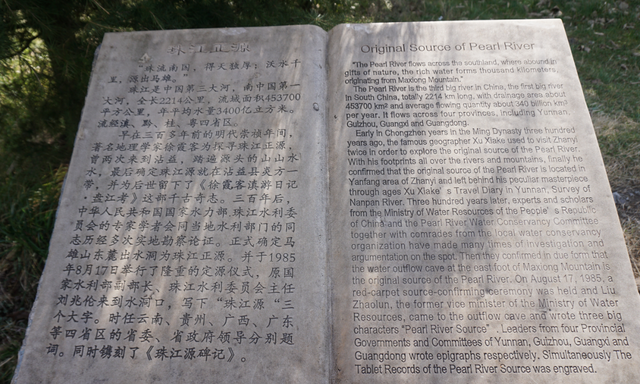 珠江正源
“珠流南国，得天独厚；沃水千
里，源出马雄。”
珠江是中国第三大河，南中国第一
大河，全长2214公里，流域面积453700
平方公里，年平均水量3400亿立方米。
流经滇、黔、桂、粤四省区。
早在三百多年前的明代崇祯年间，
著名地理学家徐霞客为探寻珠江正源，
曾两次来到沾益，踏遍源头的山山水
水，最后确定珠江源就在沾益县炎方一
带，并为后世留下了《徐霞客滇游日记
·盘江考》这部千古奇志。三百年后，
中华人民共和国国家水利部、珠江水利委
员会的专家学者会同当地水利部门的同
志历经多次实地勘察论证。正式确定马
雄山东麓出水洞为珠江正源。并于1985
年8月17日举行了隆重的定源仪式，原国
家水利部副部长、珠江水利委员会主任
刘兆伦来到水洞口，写下“珠江源”三
个大字。时任云南、贵州、广西、广东
等四省区的省委、省政府领导分别题
词。同时镌刻了《珠江源碑记》。
Original Source of Pearl River
"The Pearl River flows across the southland, where abound in
gifts of nature, the rich water forms thousand kilometers,
originating from Maxiong Mountain."
The Pearl River is the third big river in China, the first big river
in South China, totally 2214 km long, with drainage area about
453700 km² and average flowing quantity about 340 billion km³
per year. It flows across four provinces, including Yunnan,
Guizhou, Guangxi and Guangdong.
Early in Chongzhen years in the Ming Dynasty three hundred
years ago, the famous geographer Xu Xiake used to visit Zhanyi
twice in order to explore the original source of the Pearl River.
With his footprints all over the rivers and mountains, finally he
confirmed that the original source of the Pearl River is located in
Yanfang area of Zhanyi and left behind his peculiar masterpiece
through ages Xu Xiake' s Travel Diary in Yunnan, Survey of
Nanpan River. Three hundred years later, experts and scholars
from the Ministry of Water Resources of the People' s Republic
of China and the Pearl River Water Conservancy Committee
together with comrades from the local water conservancy
organization have made many times of investigation and
argumentation on the spot. Then they confirmed in due form that
the water outflow cave at the east foot of Maxiong Mountain is
the original source of the Pearl River.On August 17, 1985, a
red-carpet source-confirming ceremony was held and Liu
Zhaolun, the former vice minister of the Ministry of Water
Resources, came to the outflow cave and wrote three big
characters "Pearl River Source" . Leaders from four Provincial
Governments and Committees of Yunnan, Guizhou, Guangxi and
Guangdong wrote epigraphs respectively. Simultaneously The
Tablet Records of the Pearl River Source was engraved.